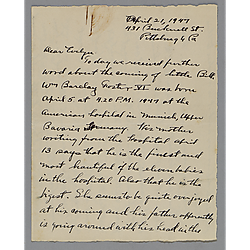 April 21, 1947
431 Bucknell St.
Pittsburg 6 Pa
Dear Evelyn
Today we received further
word about the coming of little Bill
Wm Barclay Foster VI was born
April 5 at 9.20 P.M. 1947 at the
American hospital in Munich, Upper
Bavaria Germany. His mother
writing from the hospital April
13 says that he is the finest and
most beautiful of the eleven babies
in the hospital. Also that he is the
bigest. She seems to be quite overjoyed
at his coming and his father apparently
is going around with his head in the